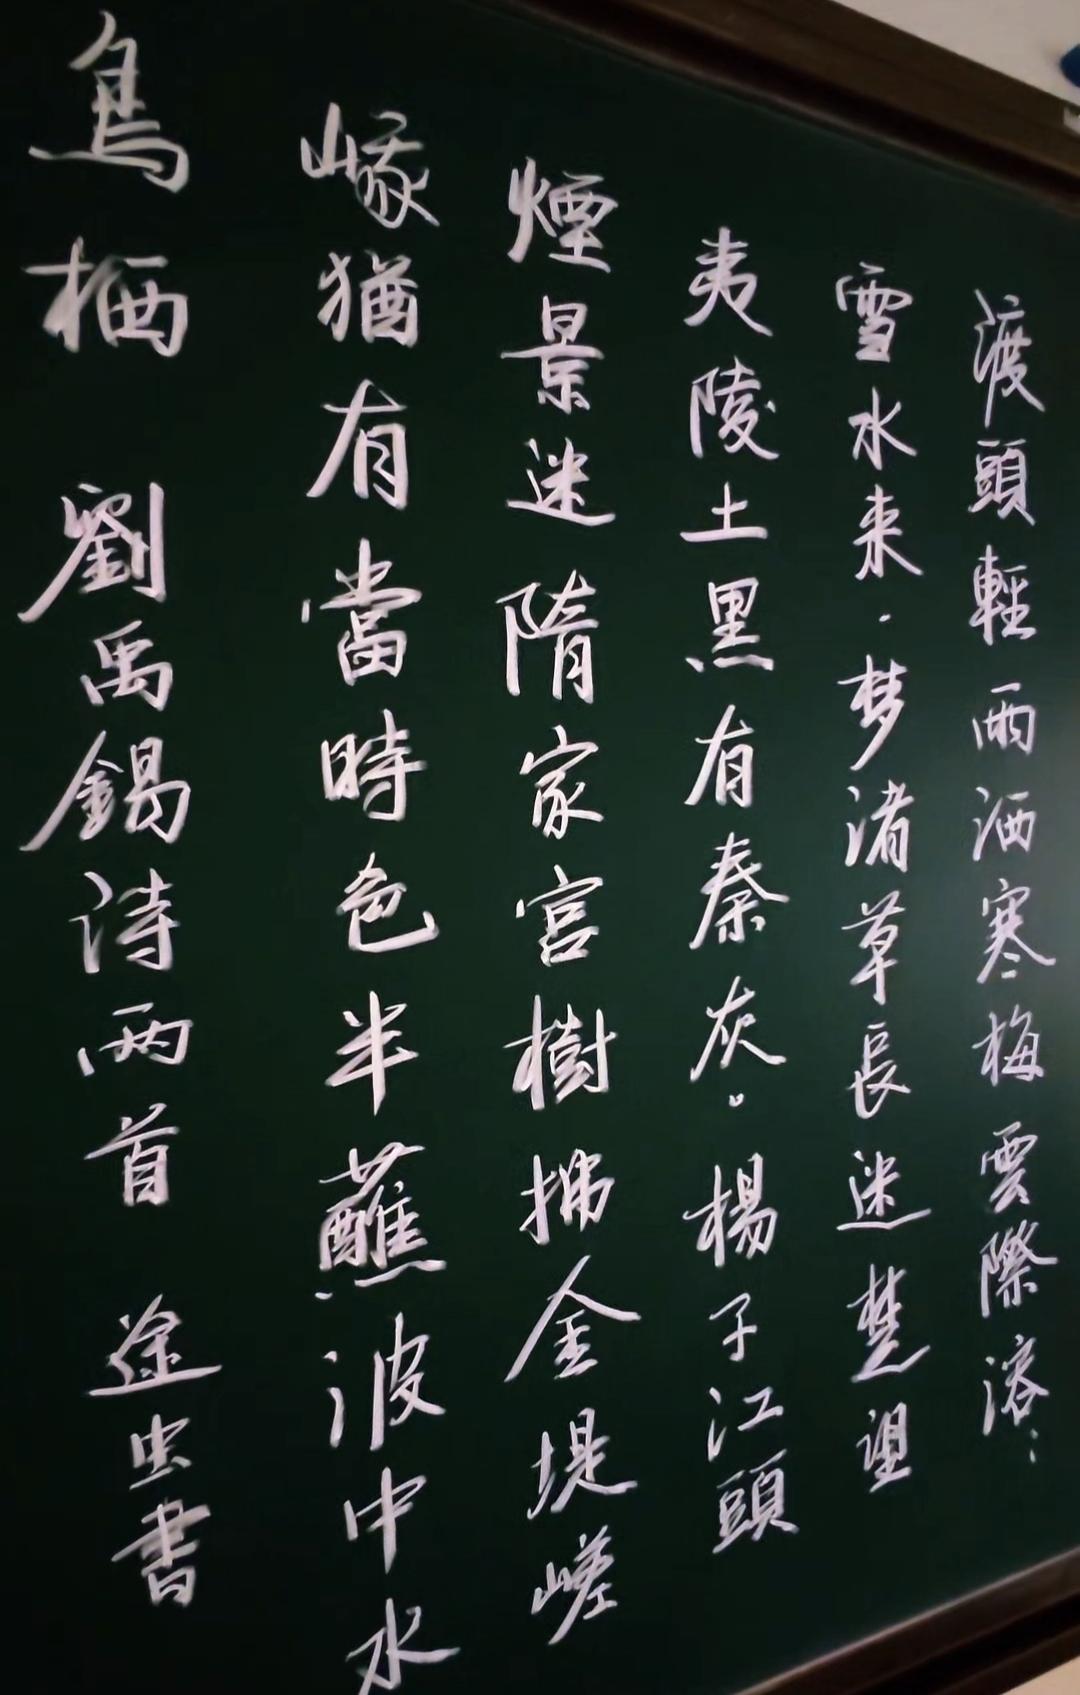 渡頭輕雨洒寒梅雲際溶〻
雪水来·梦渚草長迷楚望
夷陵土黑有秦灰。楊子江頭
煙景迷隋家宮樹拂金堤嵯
峨猶有當時色半蘸波中水
鳥栖 劉禹錫诗两首 途虫書